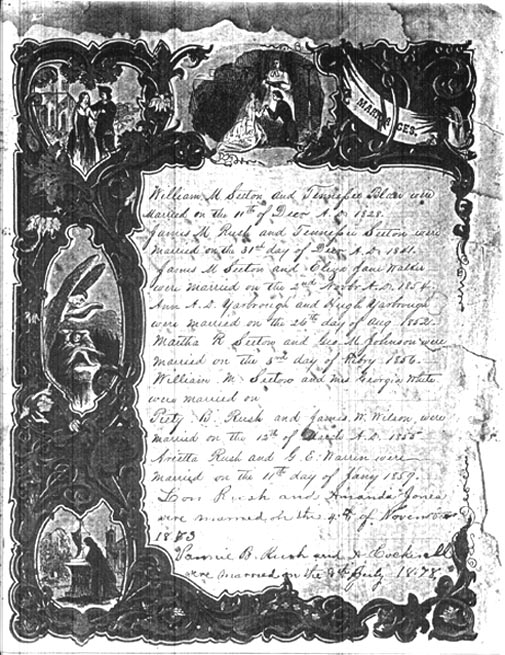 MARRIAGES.
William M Seeton and Tennessee Blair were
Married on the 11th of Decr A.D. 1828.
James M Rush and Tennessee Seeton were
Married on the 31st day of Decr A.D. 1841.
James M Seeton and Eliza Jane Walker
were married on the 2nd Novbr A.D. 1854.
Ann A.D. Yarbrough and Hugh Yarbrough
were married on the 26th day of Aug 1852.
Martha R Seeton and Geo. M Johnson were
married on the 3rd day of 1856.
William M. Seeton and Mrs Georgia White
were married on
Piety B. Rush and James W. Wilson were
married on the 12th of A.D. 1855
Arietta Rush and G. E. Warren were
married on the 11th day of Jany 1859.
Lon Rush and Amanda Jones
were married on the 4th of November
18 3
Fannie B. Rush and
were married on the 8th July 1878